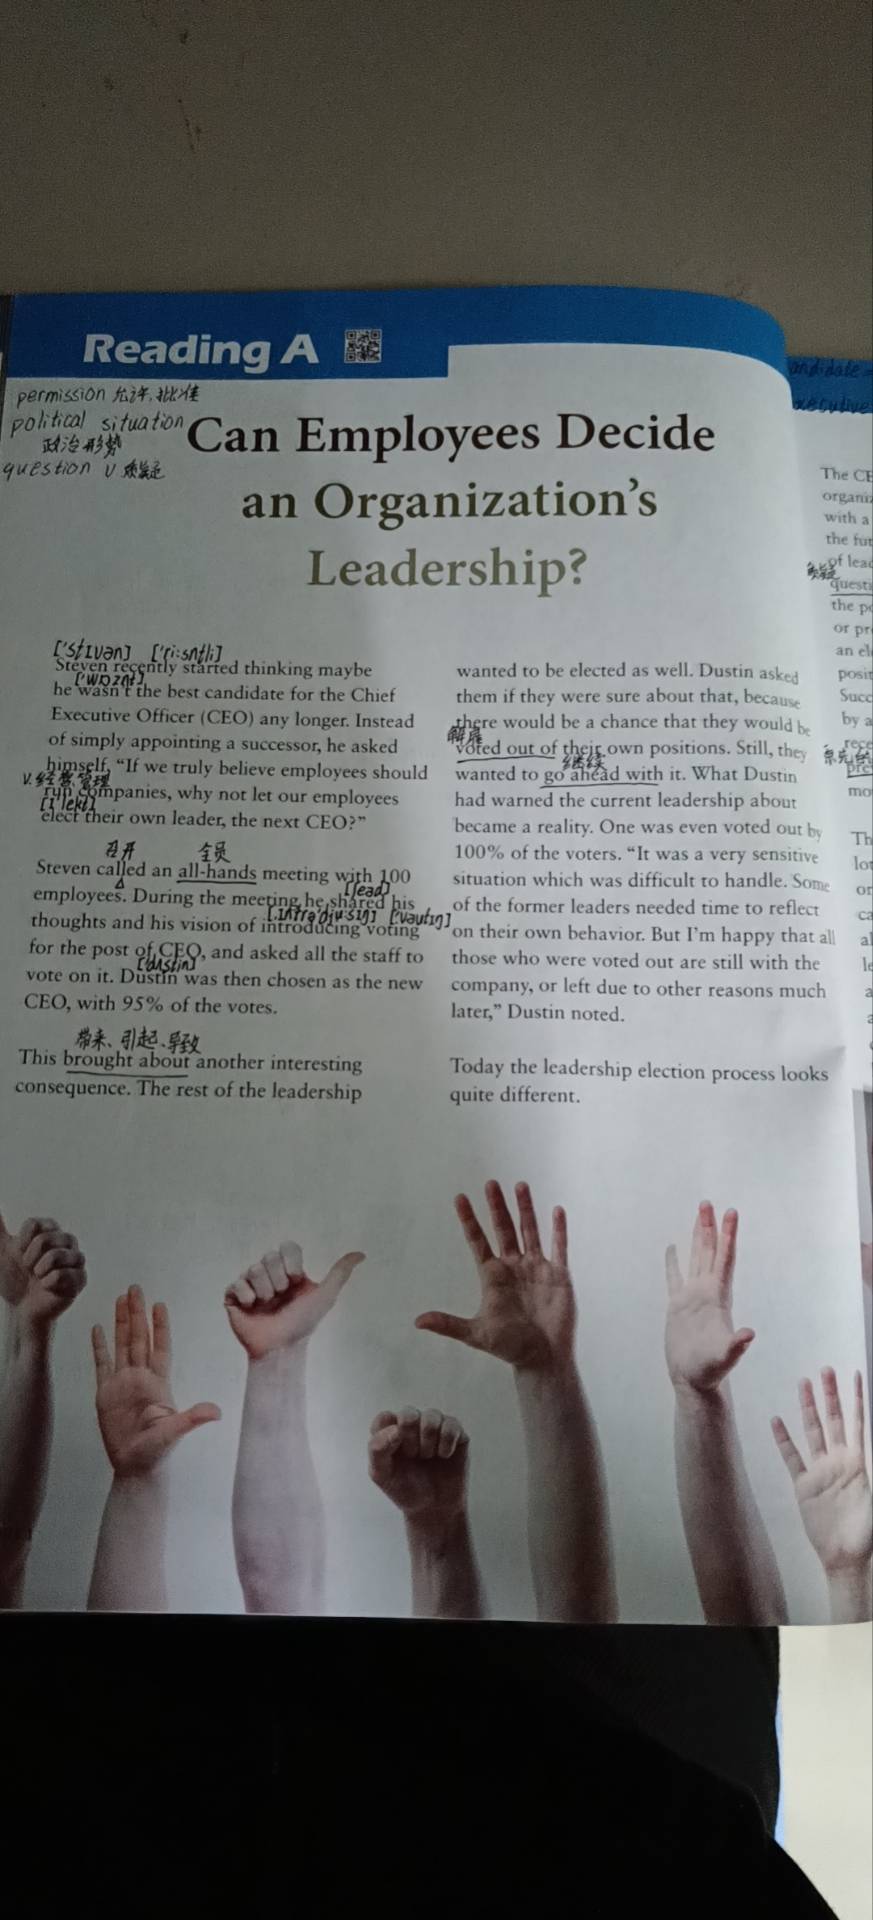 Reading A
permission 允许,批准
political situation
政治形势
question v 质疑
Can Employees Decide
an Organization's
Leadership?
['stɪvən] ['ri:sntli]
Steven recently started thinking maybe
['wɒznt]
he wasn't the best candidate for the Chief
Executive Officer (CEO) any longer. Instead
of simply appointing a successor, he asked
himself, "If we truly believe employees should
v.经营、管理
run companies, why not let our employees
[ɪ'lekt]
elect their own leader, the next CEO?"
召开 全员
Steven called an all-hands meeting with 100
employees. During the meeting he shared his
thoughts and his vision of introducing voting
for the post of CEO, and asked all the staff to
['dʌstin]
vote on it. Dustin was then chosen as the new
CEO, with 95% of the votes.
带来、引起、导致
This brought about another interesting
consequence. The rest of the leadership
wanted to be elected as well. Dustin asked
them if they were sure about that, because
there would be a chance that they would be
解雇
voted out of their own positions. Still, they
继续
wanted to go ahead with it. What Dustin
had warned the current leadership about
became a reality. One was even voted out by
100% of the voters. "It was a very sensitive
situation which was difficult to handle. Some
of the former leaders needed time to reflect
on their own behavior. But I'm happy that all
those who were voted out are still with the
company, or left due to other reasons much
later," Dustin noted.
Today the leadership election process looks
quite different.
andidate
executive
The CE
organiz
with a
the fut
of lead
质疑
questi
the p
or pr
an el
posit
Succ
by a
rece
pre
mo
Th
lot
or
ca
al
le
a